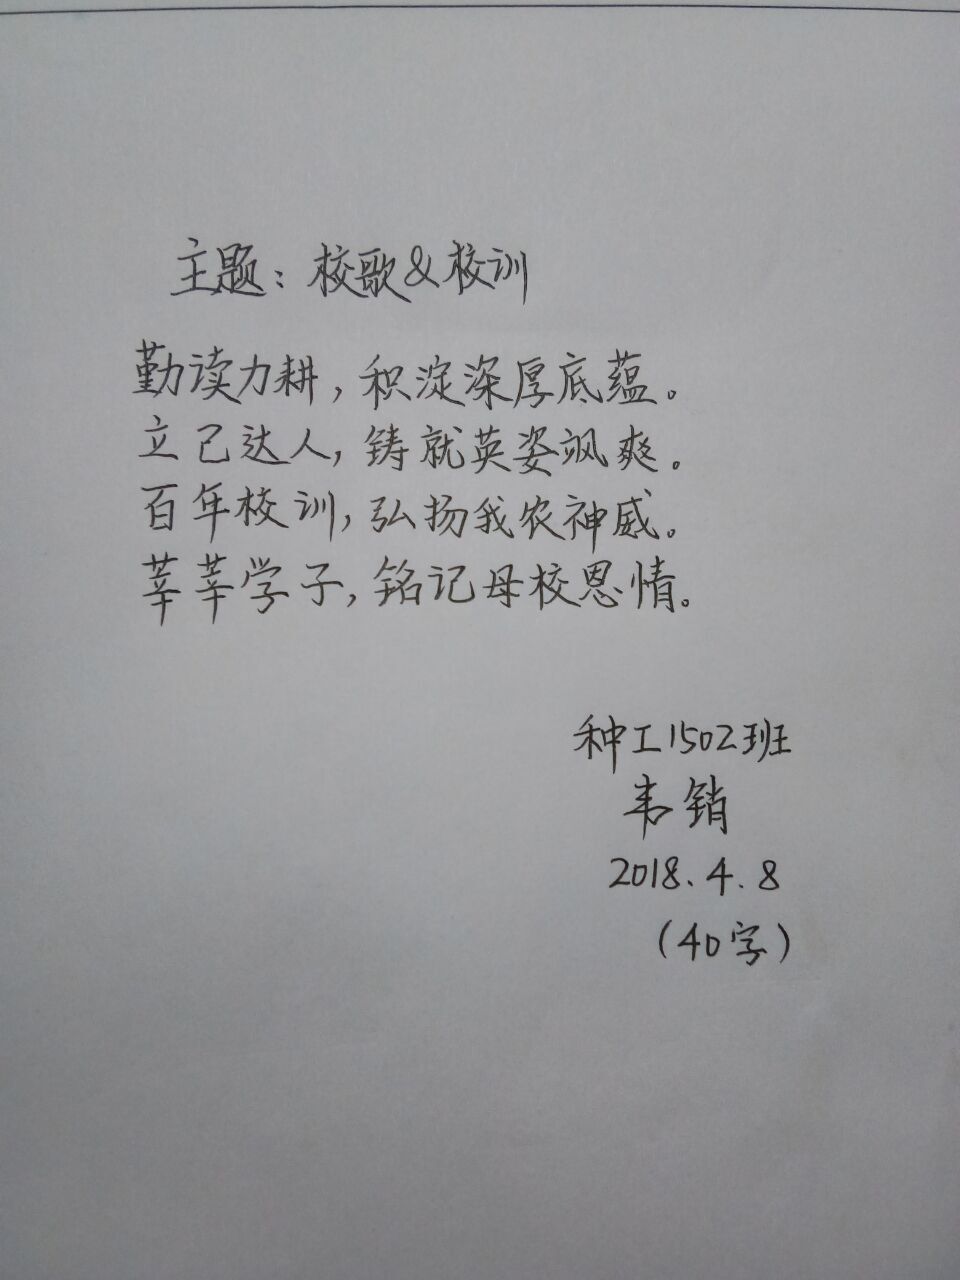 主题：校歌&校训
勤读力耕，积淀深厚底蕴。
立己达人，铸就英姿飒爽。
百年校训，弘扬我农神威。
莘莘学子，铭记母校恩情。
种工1502班
韦销
2018.4.8
（40字）